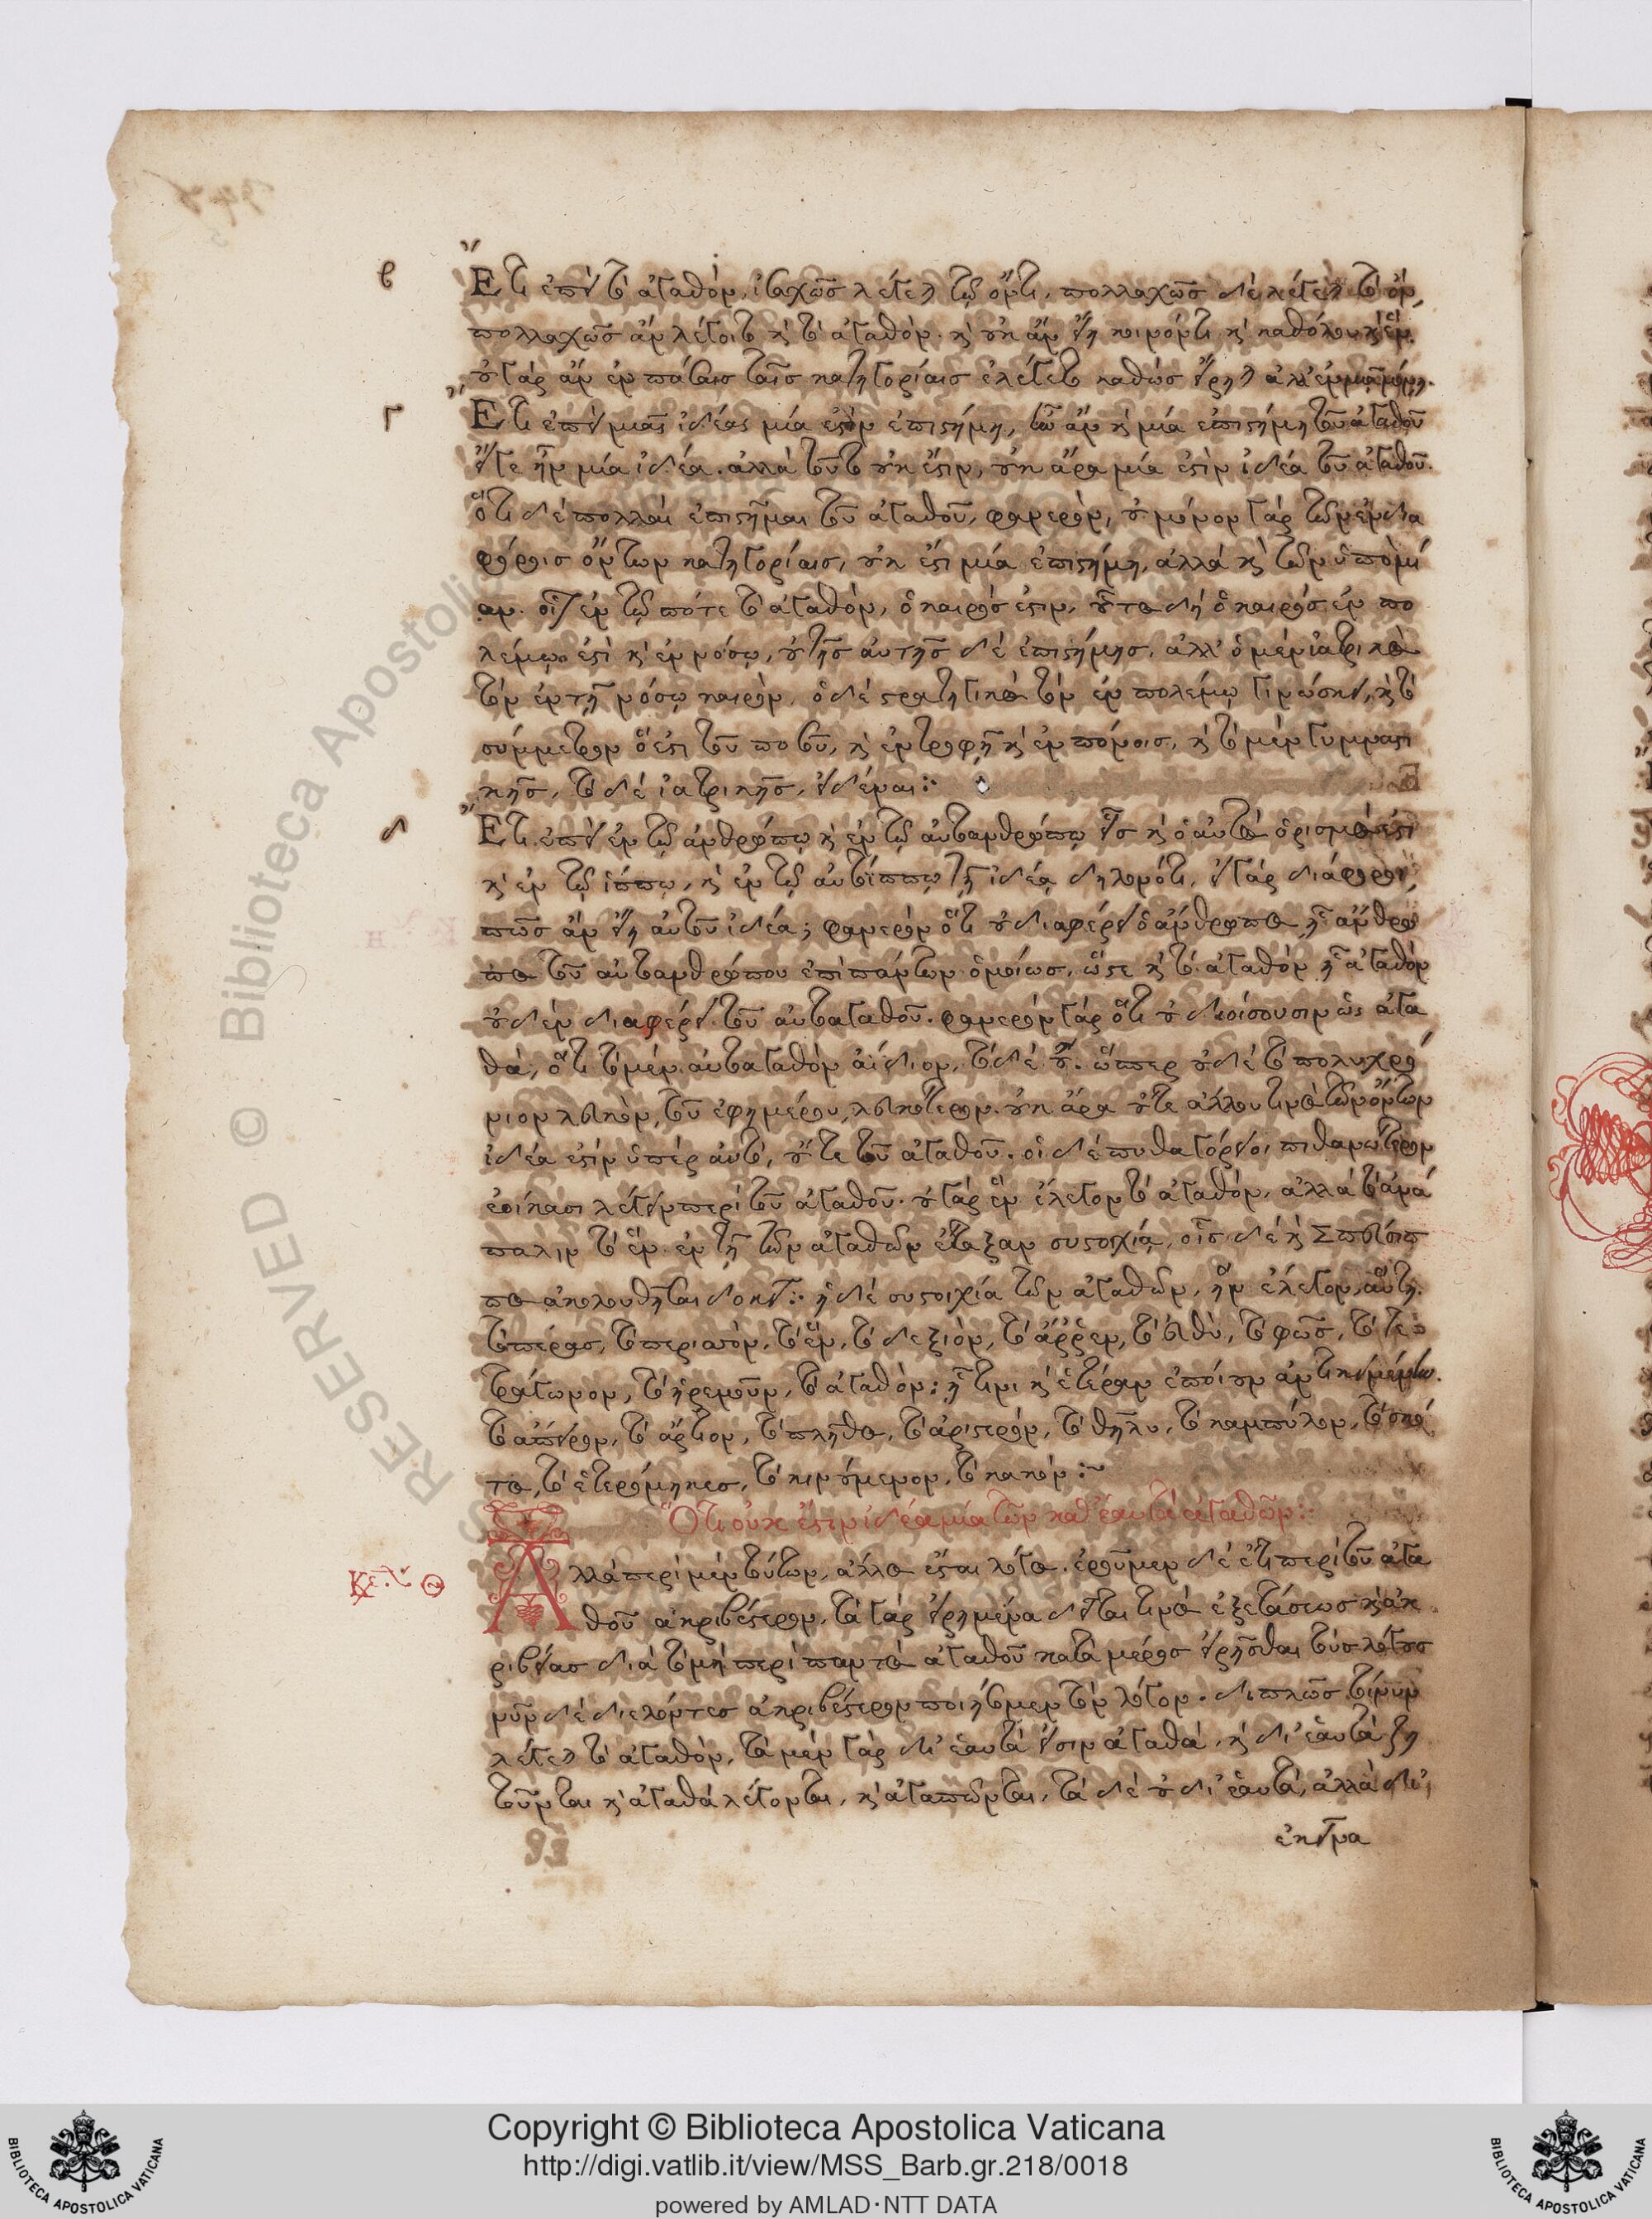 β Ἔτι ἐπεὶ τὸ ἀγαθὸν, ἰσαχῶς λέγεται τῷ ὄντι, πολλαχῶς δὲ λέγεται τὸ ὄν,
πολλαχῶς ἂν λέγοιτο καὶ τὸ ἀγαθόν. καὶ οὐκ ἂν εἴη κοινόν τι καὶ καθόλου καὶ ἕν.
οὐ γὰρ ἂν ἐν πάσαις ταῖς κατηγορίαις ἐλέγετο καθὼς εἴρηται ἀλλ' ἐν μιᾷ μόνῃ.
γ Ἔτι ἐπεὶ μιᾶς ἰδέας μία ἐστὶν ἐπιστήμη, ἦν ἂν καὶ μία ἐπιστήμη τοῦ ἀγαθοῦ
εἴγε ἦν μία ἰδέα. ἀλλὰ τοῦτο οὐκ ἔστιν, οὐκ ἄρα μία ἐστὶν ἰδέα τοῦ ἀγαθοῦ.
ὅτι δὲ πολλαὶ ἐπιστῆμαι τοῦ ἀγαθοῦ, φανερὸν, οὐ μόνον γὰρ τῶν ἐν δια
φόροις ὄντων κατηγορίαις, οὐκ ἔστι μία ἐπιστήμη, ἀλλὰ καὶ τῶν ὑπὸ μί
αν. οἷον ἐν τῷ πότε τὸ ἀγαθὸν, ὁ καιρός ἐστιν, οὗτος δὴ ὁ καιρὸς ἐν πο
λέμῳ ἐστὶ καὶ ἐν νόσῳ, οὐ τῆς αὐτῆς δὲ ἐπιστήμης, ἀλλ' ὁ μὲν ἰατρικὸς
τὸν ἐν τῇ νόσῳ καιρὸν, ὁ δὲ στρατηγικὸς τὸν ἐν πολέμῳ γινώσκει, καὶ τὸ
σύμμετρον ὅ ἐστι τοῦ ποσοῦ, καὶ ἐν τροφῇ καὶ ἐν πόνοις, καὶ τὸ μὲν γυμναστι
κῆς, τὸ δὲ ἰατρικῆς, εἰδέναι:
δ Ἔτι ἐπεὶ ἐν τῷ ἀνθρώπῳ καὶ ἐν τῷ αὐτοανθρώπῳ εἷς καὶ ὁ αὐτὸς ὁρισμός ἐστι
καὶ ἐν τῷ ἵππῳ, καὶ ἐν τῷ αὐτοΐππῳ τῇ ἰδέᾳ δηλονότι, εἰ γὰρ διάφοροι,
πῶς ἂν εἴη αὐτοῦ ἰδέα; φανερὸν ὅτι οὐ διαφέρει ὁ ἄνθρωπος ᾗ ἄνθρω
πος τοῦ αὐτοανθρώπου ἐπὶ πάντων ὁμοίως. ὥστε καὶ τὸ ἀγαθὸν ᾗ ἀγαθὸν
οὐδὲν διαφέρει τοῦ αὐτοαγαθοῦ. φανερὸν γὰρ ὅτι οὐ διοίσουσιν ὡς ἀγα
θὰ, ὅτι τὸ μὲν αὐτοαγαθὸν ἀΐδιον, τὸ δὲ οὔ. ὥσπερ οὐδὲ τὸ πολυχρό
νιον λευκὸν, τοῦ ἐφημέρου, λευκότερον. οὐκ ἄρα οὔτε ἄλλου τινὸς τῶν ὄντων
ἰδέα ἐστὶν ὑπὲρ αὐτὸ, οὔτε τοῦ ἀγαθοῦ. οἱ δὲ πυθαγόρειοι πιθανώτερον
ἐοίκασι λέγειν περὶ τοῦ ἀγαθοῦ. οὐ γὰρ ἓν ἔλεγον τὸ ἀγαθὸν, ἀλλὰ τὸ ἀνά
παλιν τὸ ἓν ἐν τῇ τῶν ἀγαθῶν ἔταξαν συστοιχίᾳ, οἷς δὲ καὶ Σπεύσιπ
πος ἀκολουθῆσαι δοκεῖ: ἡ δὲ συστοιχία τῶν ἀγαθῶν, ἣν ἔλεγον, αὕτη.
τὸ πέρας, τὸ περιττὸν, τὸ ἓν, τὸ δεξιὸν, τὸ ἄῤῥεν, τὸ εὐθὺ, τὸ φῶς, τὸ τε
τράγωνον, τὸ ἠρεμοῦν, τὸ ἀγαθόν: ᾗτινι καὶ ἑτέραν ἐποίουν ἀντικειμένην.
τὸ ἄπειρον, τὸ ἄρτιον, τὸ πλῆθος, τὸ ἀριστερὸν, τὸ θῆλυ, τὸ καμπύλον, τὸ σκό
τος, τὸ ἑτερόμηκες, τὸ κινούμενον, τὸ κακόν:~
Ὅτι οὐκ ἔστιν ἰδέα μία τῶν καθ' ἑαυτὰ ἀγαθῶν:
Κεφ. Θ Ἀλλὰ περὶ μὲν τούτων, ἄλλος ἔσται λόγος. ἐροῦμεν δὲ ἔτι περὶ τοῦ ἀγα
θοῦ ἀκριβέστερον, τὰ γὰρ εἰρημένα δεῖται τινὸς ἐξετάσεως καὶ ἀκ
ριβείας διὰ τὸ μὴ περὶ παντὸς ἀγαθοῦ κατὰ μέρος εἰρῆσθαι τοὺς λόγους
νῦν δὲ διελόντες ἀκριβέστερον ποιήσωμεν τὸν λόγον. διπλῶς τοίνυν
λέγεται τὸ ἀγαθὸν, τὰ μὲν γὰρ δι' ἑαυτά εἰσιν ἀγαθὰ, καὶ δι' ἑαυτὰ ζη
τοῦνται καὶ ἀγαθὰ λέγονται, καὶ ἀγαπῶνται, τὰ δὲ οὐ δι' ἑαυτὰ, ἀλλὰ δι'
ἐκεῖνα
93
RESERVED © Biblioteca Apostolica
Copyright © Biblioteca Apostolica Vaticana
http://digi.vatlib.it/view/MSS_Barb.gr.218/0018
powered by AMLAD·NTT DATA
BIBLIOTECA APOSTOLICA VATICANA
BIBLIOTECA APOSTOLICA VATICANA